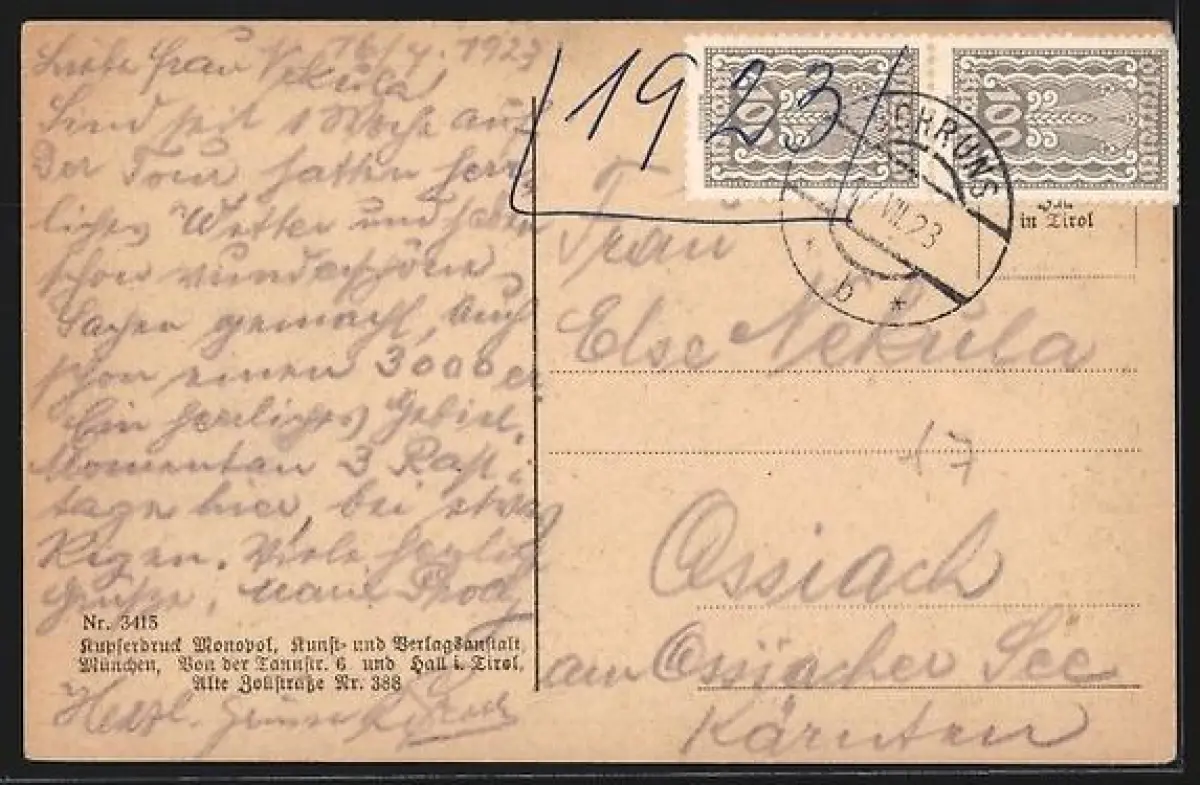 16/7. 1923
Liebe Frau Nekula
Sind seit 1 Woche auf
der Tour, hatten herr-
liches Wetter und haben
schon wunderschöne
Sachen gemacht, auch
schon einen 3000er
Ein herrliches Gebiet.
Momentan 3 Rast-
tage hier, bei etwas
Regen. Viele herzlich
Grüße,
Nr. 3415
Kupferdruck Monopol, Kunst- und Verlagsanstalt
München, Von der Tannstr. 6 und Hall i. Tirol,
Alte Zollstraße Nr. 388
Herzl. Grüsse
1923
100
100
SCHRUNS
VII.23
b *
in Tirol
Frau
Else Nekula
17
Ossiach
am Ossiacher See
Kärnten